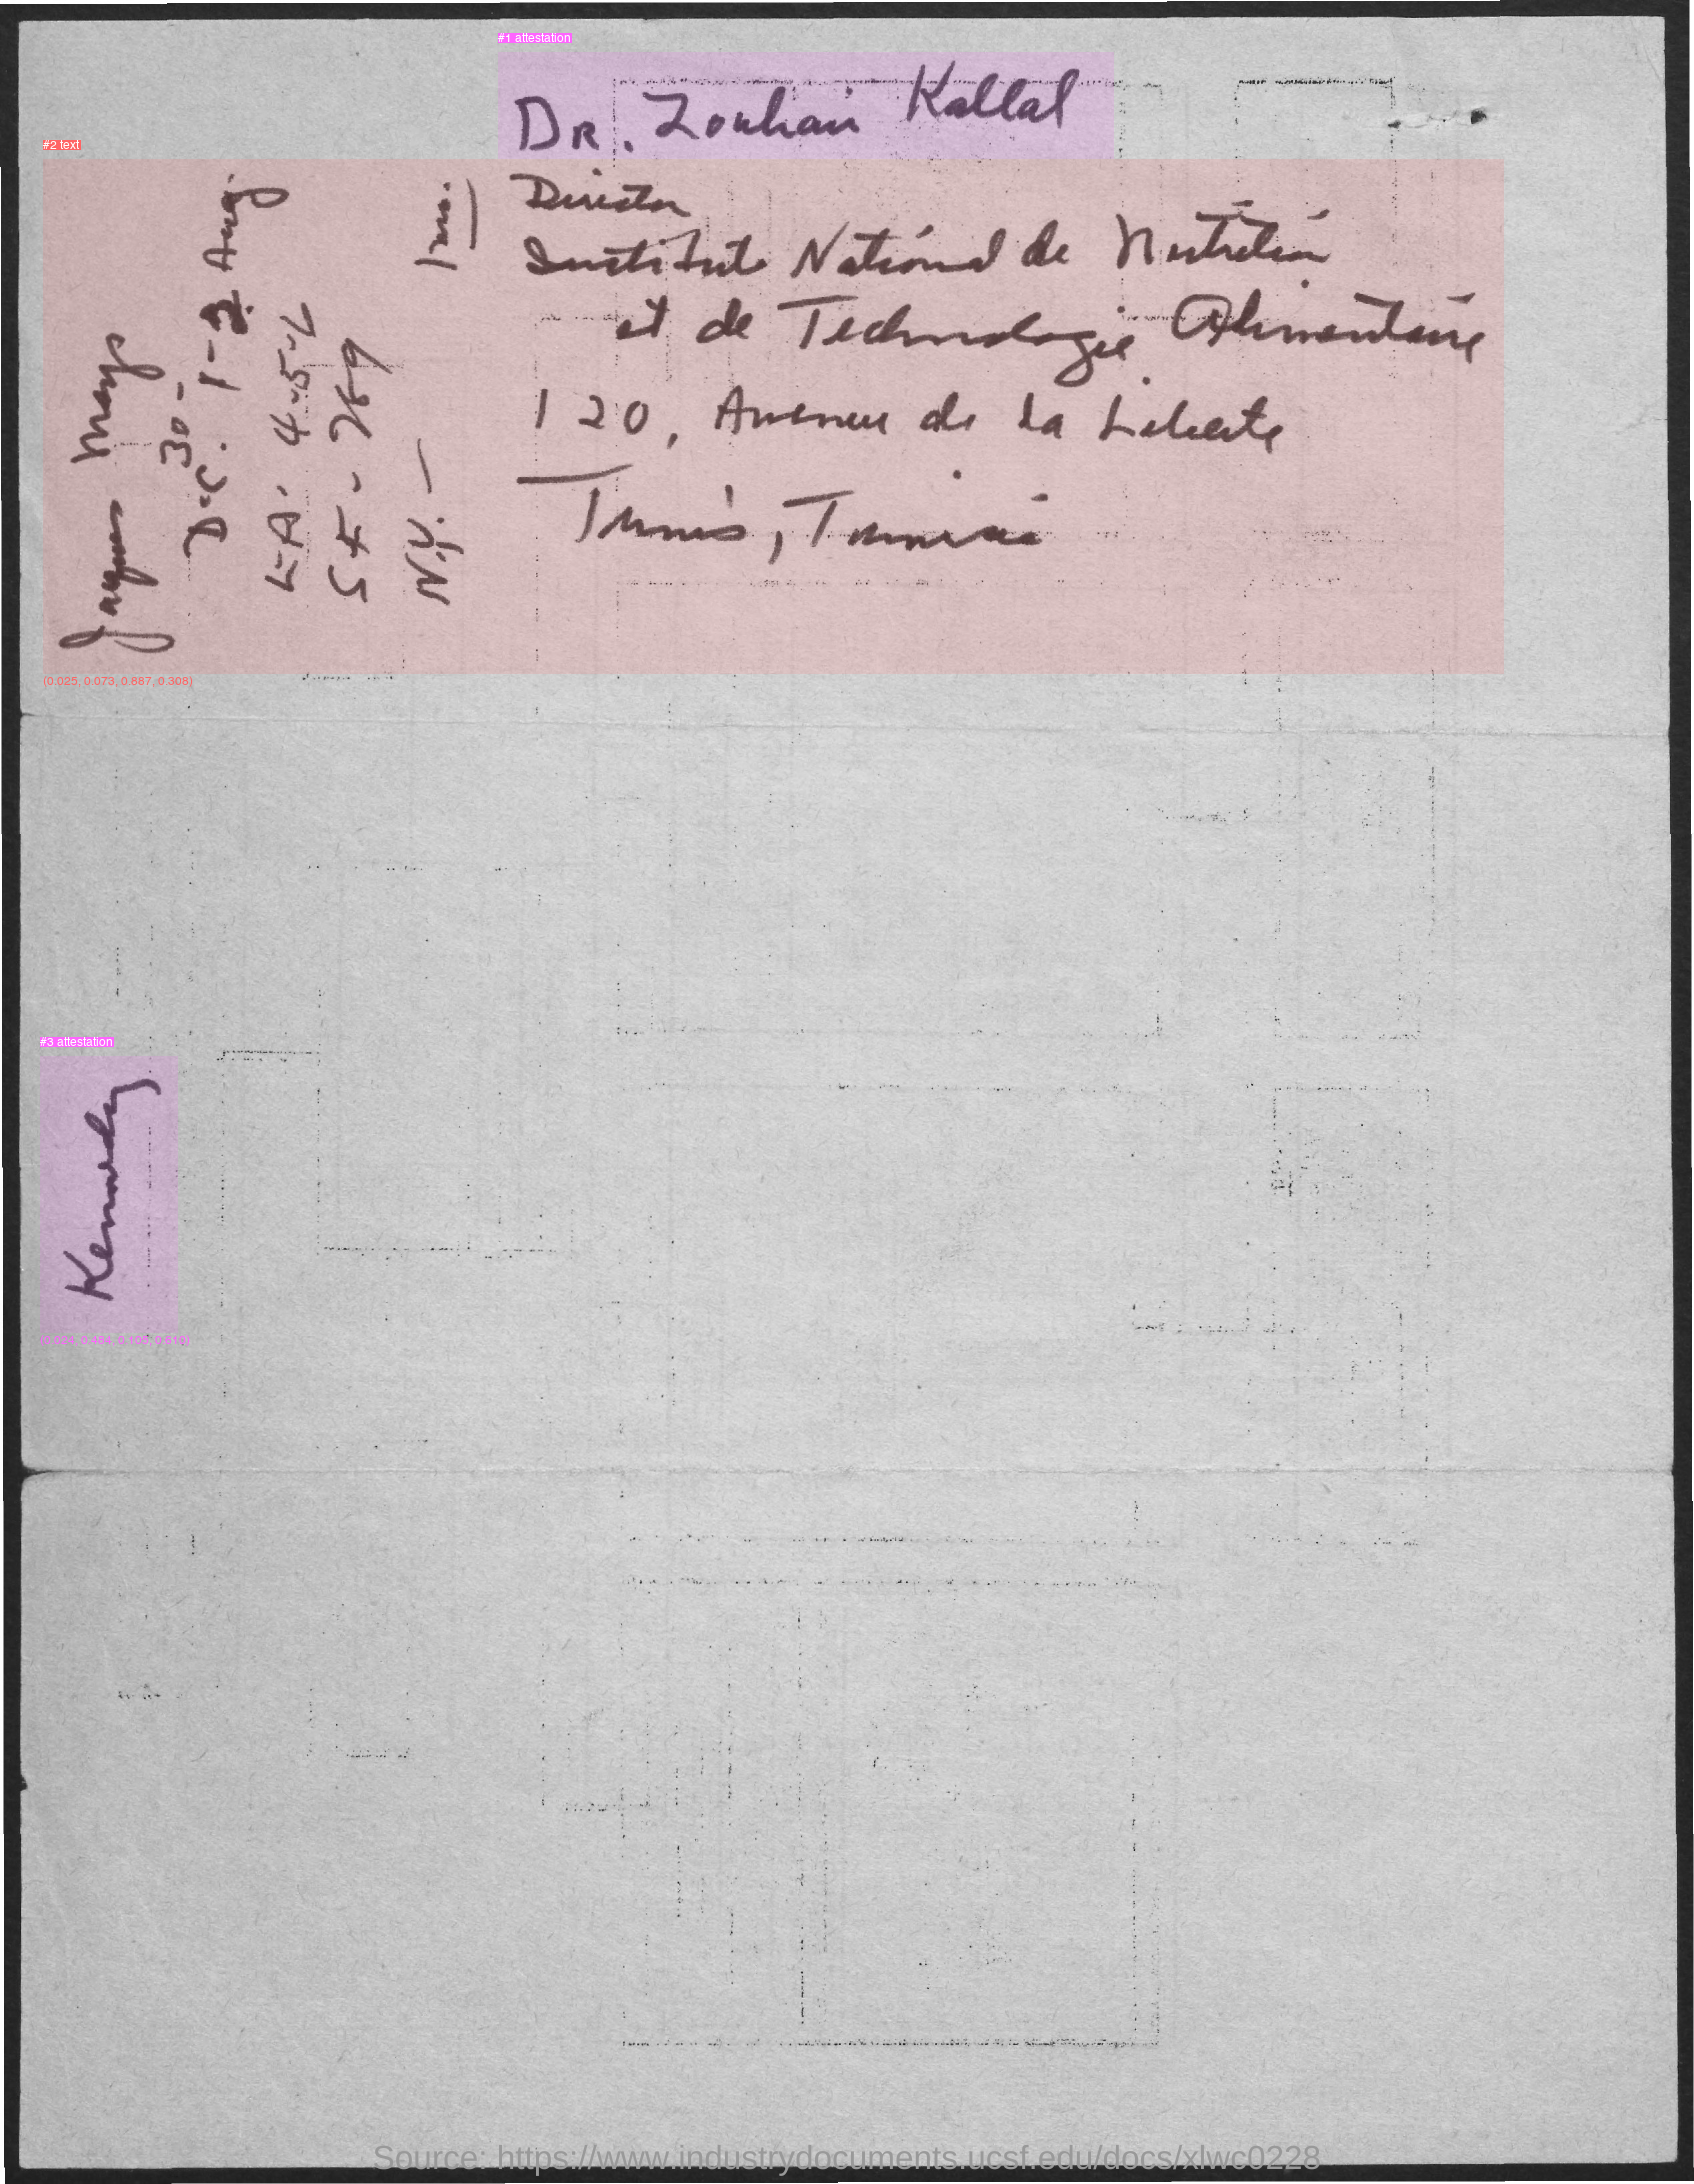 #1 attestation
DR. Zouhair Kallal
#2 text
Director
Institute National de Nutrition
et de Technologie Alimentaire
120, Avenue de La Liberte
Tunis, Tunisia
Jacques Mayo
30-
D.C. 1-2 Aug.
L.A. 4-5-6
S.F. - 7&9
N.Y. —
1 mo.
(0.025, 0.073, 0.887, 0.308)
#3 attestation
Kennedy
Source: https://www.industrydocuments.ucsf.edu/docs/xlwc0228